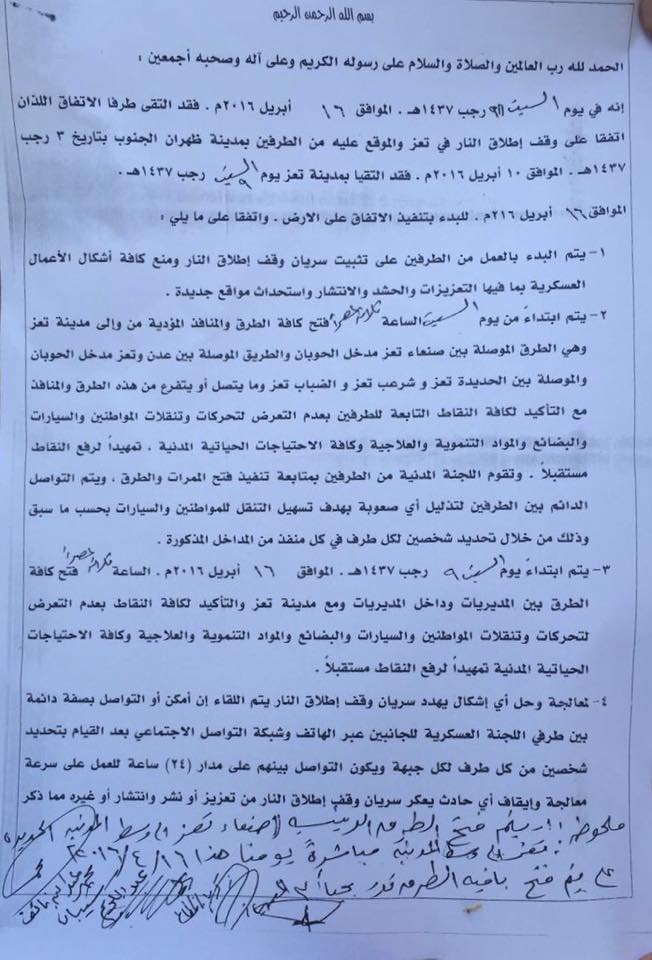 بسم الله الرحمن الرحيم
الحمد لله رب العالمين والصلاة والسلام على رسوله الكريم وعلى آله وصحبه أجمعين :
إنه في يوم السبت ٩ رجب ١٤٣٧هـ . الموافق ١٦ أبريل ٢٠١٦م . فقد التقى طرفا الاتفاق اللذان
اتفقا على وقف إطلاق النار في تعز والموقع عليه من الطرفين بمدينة ظهران الجنوب بتاريخ ٣ رجب
١٤٣٧هـ . الموافق ١٠ أبريل ٢٠١٦م . فقد التقيا بمدينة تعز يوم السبت ٩ رجب ١٤٣٧هـ .
الموافق ١٦ أبريل ٢١٦م . للبدء بتنفيذ الاتفاق على الارض . واتفقا على ما يلي :
١- يتم البدء بالعمل من الطرفين على تثبيت سريان وقف إطلاق النار ومنع كافة أشكال الأعمال
العسكرية بما فيها التعزيزات والحشد والانتشار واستحداث مواقع جديدة .
٢- يتم ابتداءً من يوم السبت الساعة ثلاثة عصراً فتح كافة الطرق والمنافذ المؤدية من وإلى مدينة تعز
وهي الطرق الموصلة بين صنعاء تعز مدخل الحوبان والطريق الموصلة بين عدن وتعز مدخل الحوبان
والموصلة بين الحديدة تعز و شرعب تعز و الضباب تعز وما يتصل أو يتفرع من هذه الطرق والمنافذ
مع التأكيد لكافة النقاط التابعة للطرفين بعدم التعرض لتحركات وتنقلات المواطنين والسيارات
والبضائع والمواد التنموية والعلاجية وكافة الاحتياجات الحياتية المدنية ، تمهيداً لرفع النقاط
مستقبلاً . وتقوم اللجنة المدنية من الطرفين بمتابعة تنفيذ فتح الممرات والطرق ، ويتم التواصل
الدائم بين الطرفين لتذليل أي صعوبة بهدف تسهيل التنقل للمواطنين والسيارات بحسب ما سبق
وذلك من خلال تحديد شخصين لكل طرف في كل منفذ من المداخل المذكورة .
٣- يتم ابتداءً يوم السبت ٩ رجب ١٤٣٧هـ . الموافق ١٦ أبريل ٢٠١٦م . الساعة ثلاثة عصراً فتح كافة
الطرق بين المديريات وداخل المديريات ومع مدينة تعز والتأكيد لكافة النقاط بعدم التعرض
لتحركات وتنقلات المواطنين والسيارات والبضائع والمواد التنموية والعلاجية وكافة الاحتياجات
الحياتية المدنية تمهيداً لرفع النقاط مستقبلاً .
٤- لمعالجة وحل أي إشكال يهدد سريان وقف إطلاق النار يتم اللقاء إن أمكن أو التواصل بصفة دائمة
بين طرفي اللجنة العسكرية للجانبين عبر الهاتف وشبكة التواصل الاجتماعي بعد القيام بتحديد
شخصين من كل طرف لكل جبهة ويكون التواصل بينهم على مدار (٢٤) ساعة للعمل على سرعة
معالجة وإيقاف أي حادث يعكر سريان وقف إطلاق النار من تعزيز أو نشر وانتشار أو غيره مما ذكر
ملحوظة : ١/ يتم فتح الطرق الرئيسية (صنعاء تعز الى وسط المدينة الحديدة
تعز الى وسط المدينة مباشرةً يومنا هذا ١٦/٤/٢٠١٦م
٢/ يتم فتح باقية الطرق تدريجياً